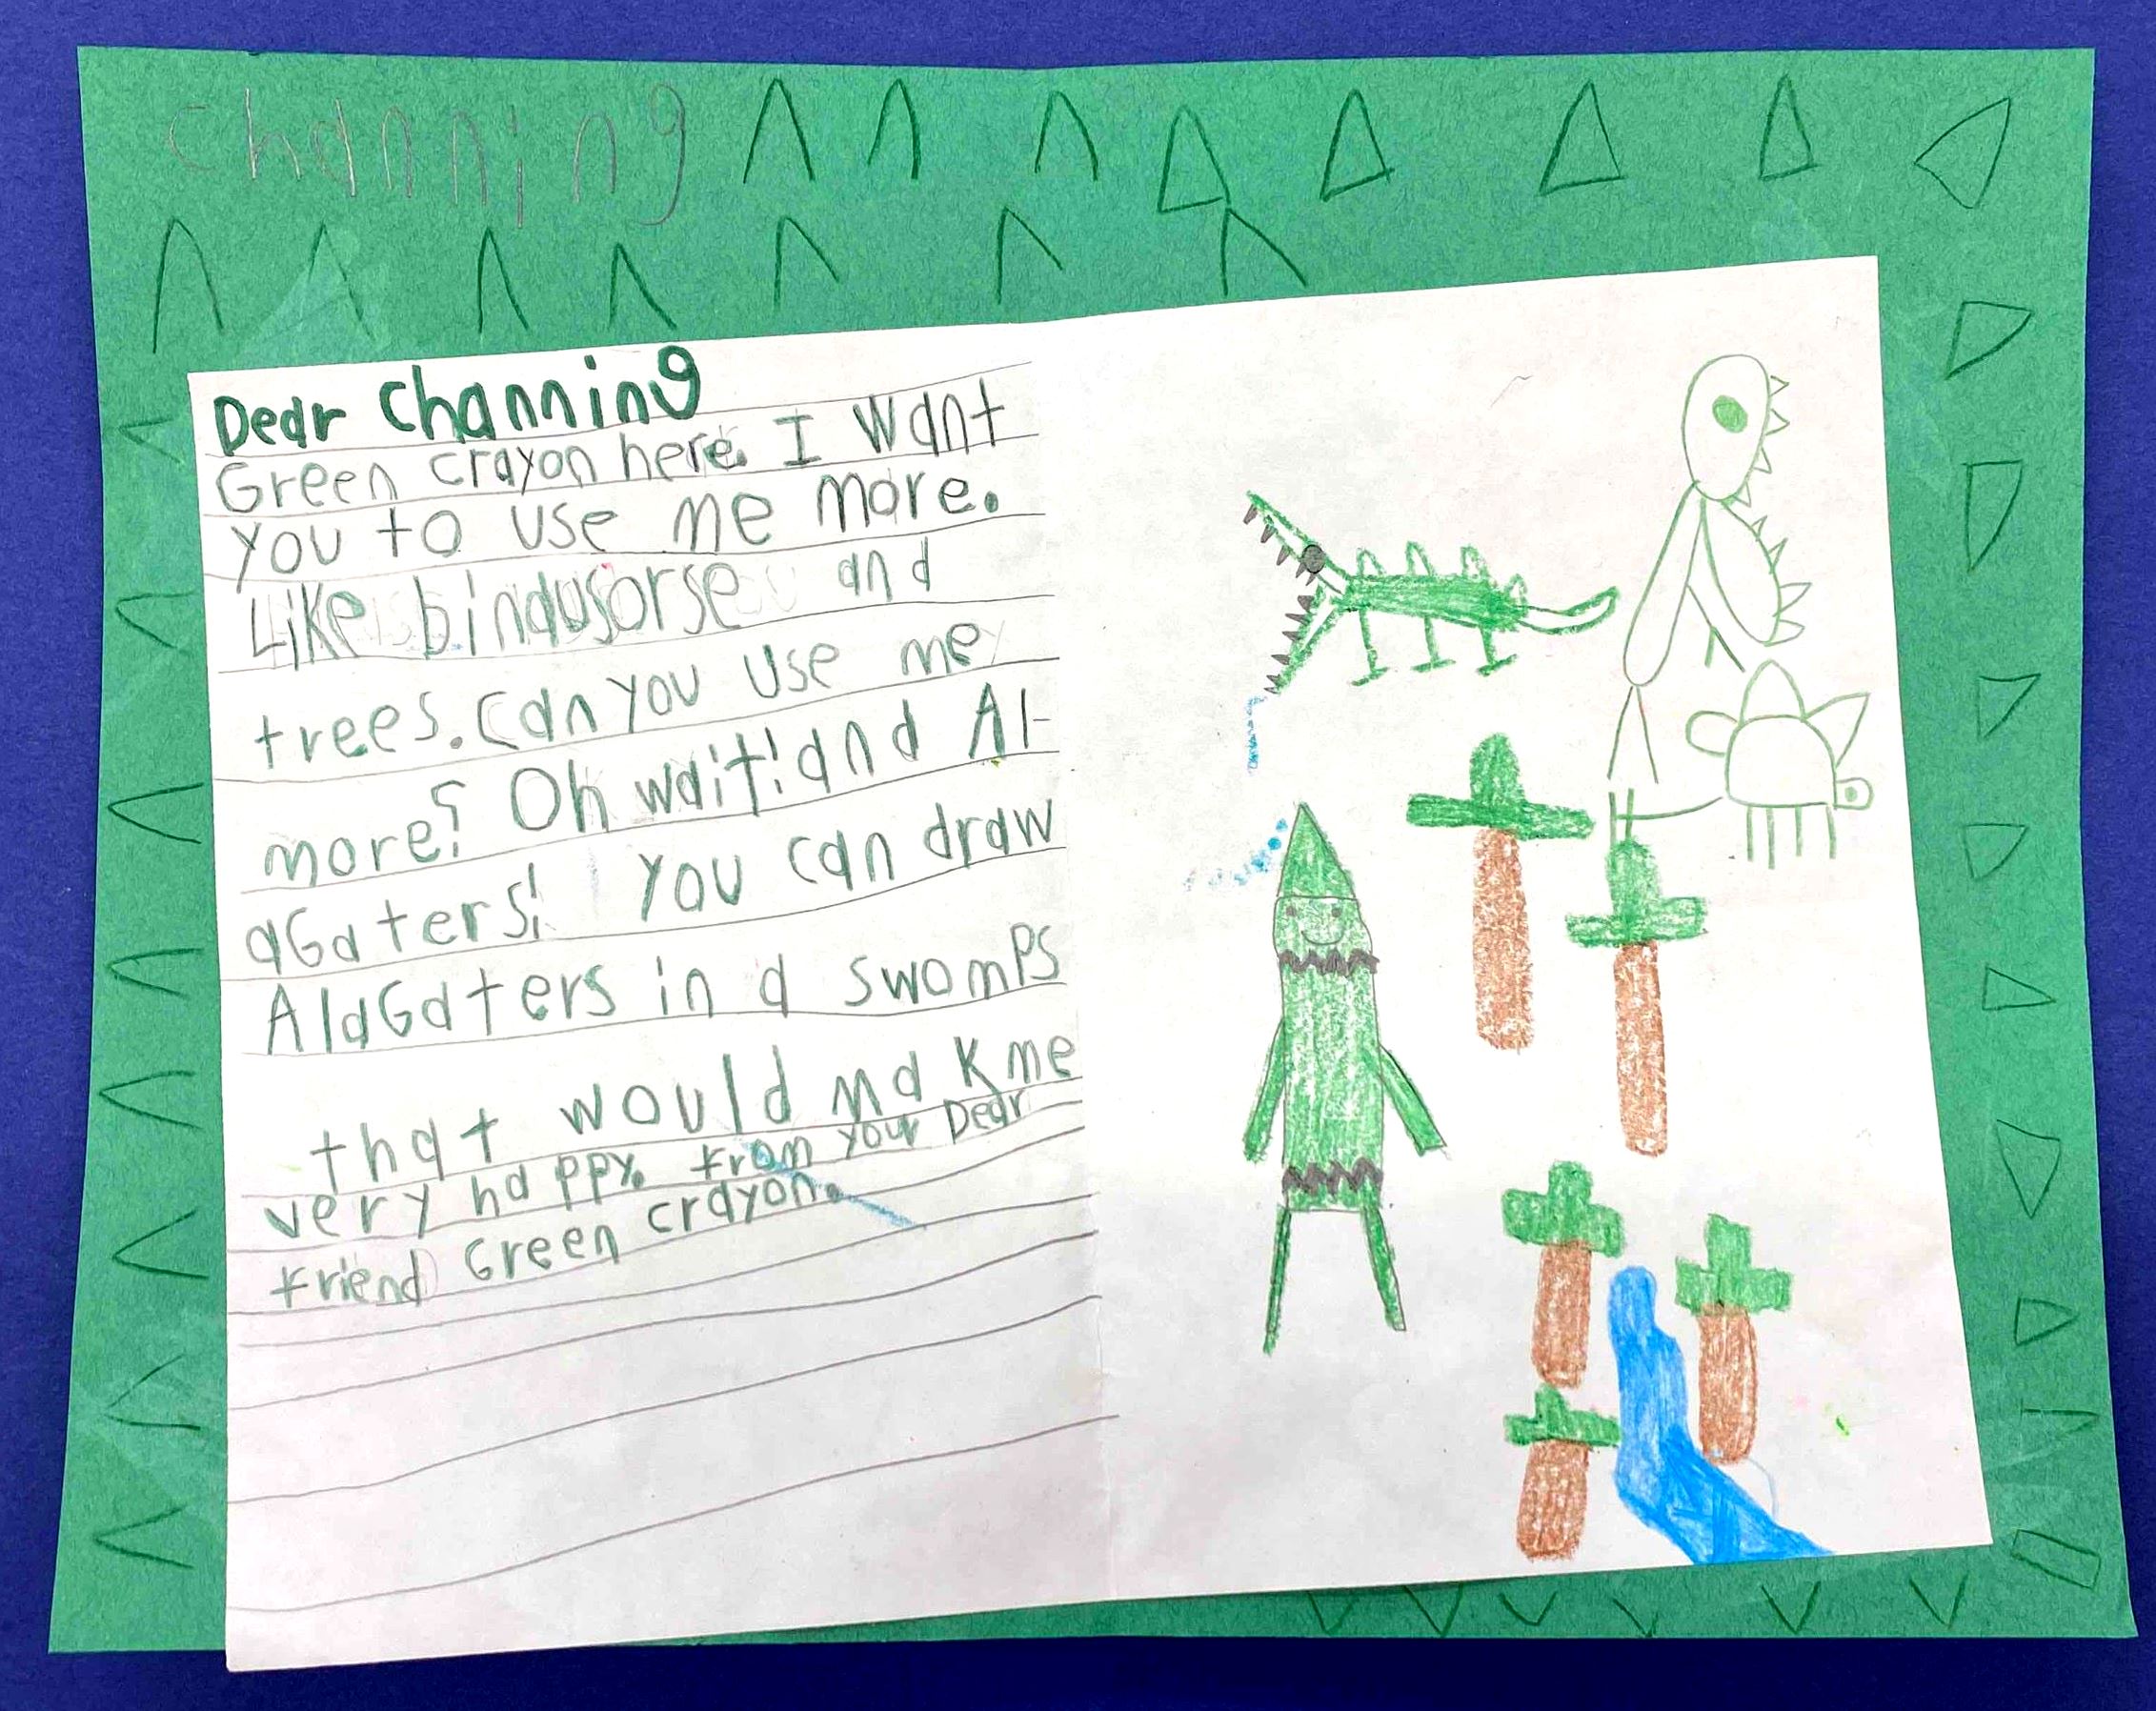 channing
Dear channing
Green crayon here. I want
you to use me more.
Like bindusorse and
trees. can you use me
more? Oh wait! and Al-
aGaters! You can draw
AlaGaters in a swomps
that would mak me
very happy. From your Dear
Friend Green crayon.